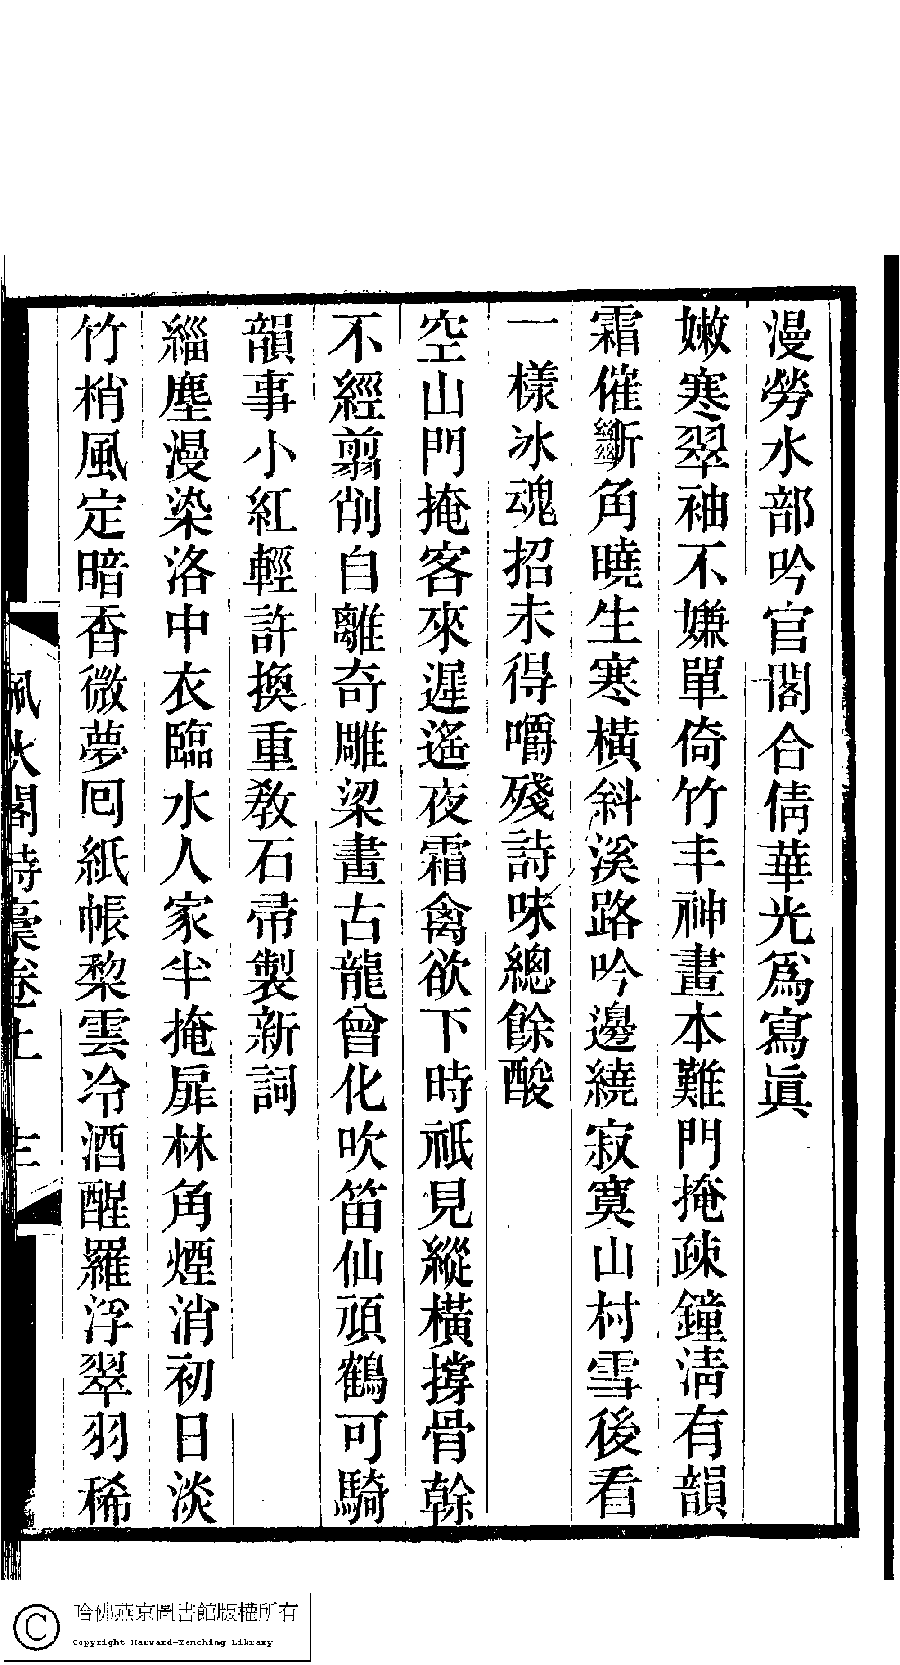 漫勞水部吟官閣合倩華光爲寫眞
嫩寒翠袖不嫌單倚竹丰神畫本難門掩疎鐘淸有韻
霜催斷角曉生寒橫斜溪路吟邊繞寂寞山村雪後看
一樣冰魂招未得嚼殘詩味總餘酸
空山門掩客來遲遙夜霜禽欲下時祇見縱橫撐骨榦
不經翦削自離奇雕梁畫古龍曾化吹笛仙頑鶴可騎
韻事小紅輕許換重敎石帚製新詞
緇塵漫染洛中衣臨水人家半掩扉林角煙消初日淡
竹梢風定暗香微夢回紙帳棃雲冷酒醒羅浮翠羽稀
閣詩稾卷上
哈佛燕京圖書館版權所有
Copyright Harvard-Yenching Library